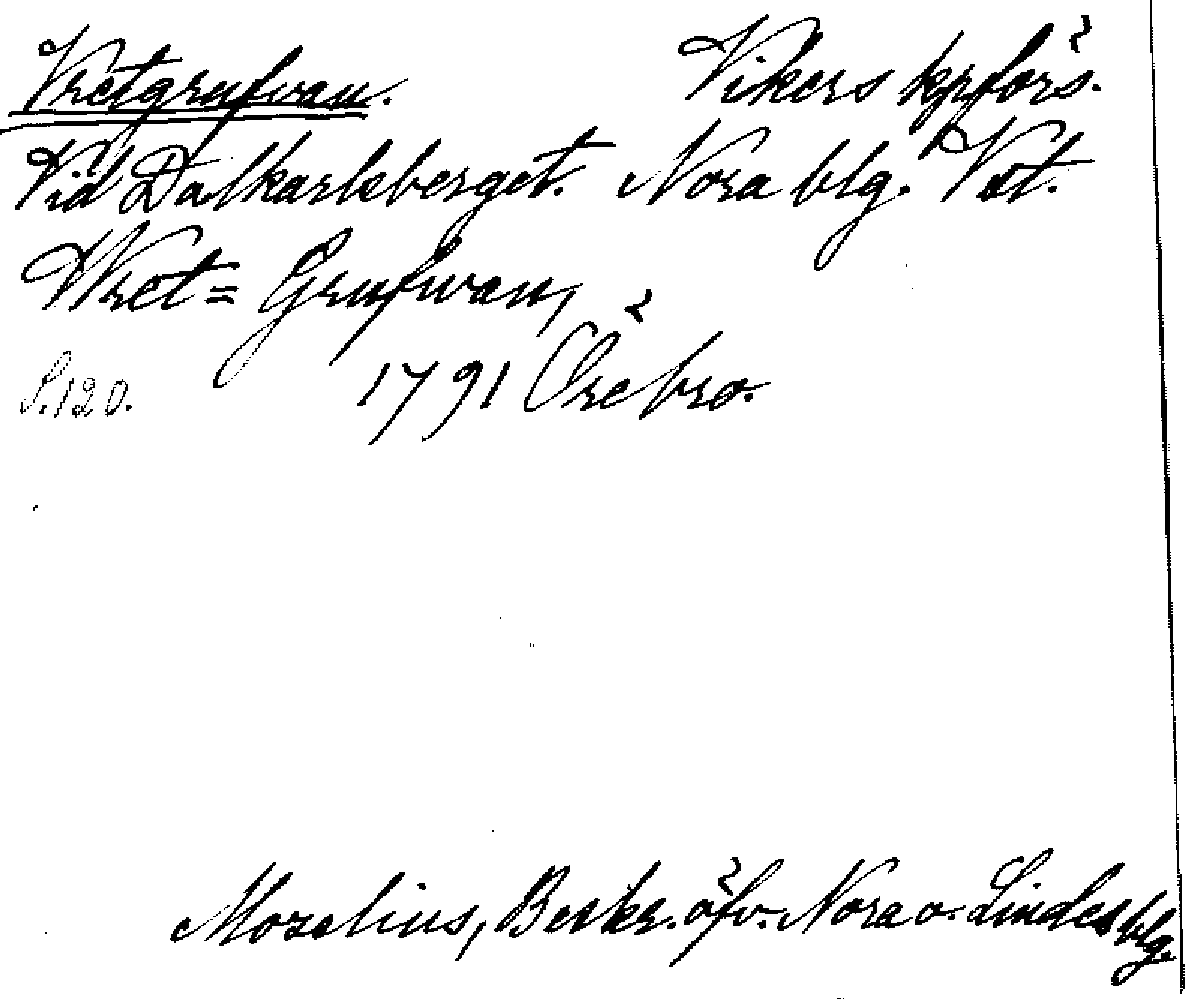 Vretgrufwan. Vikers kpförs.
Vid Dalkarlsberget. Nora blg. Vst.
Wret= Grufwan,
S. 120. 1791 Örebro.
Moselius, Beskr. öfv. Nora o. Lindes blg.